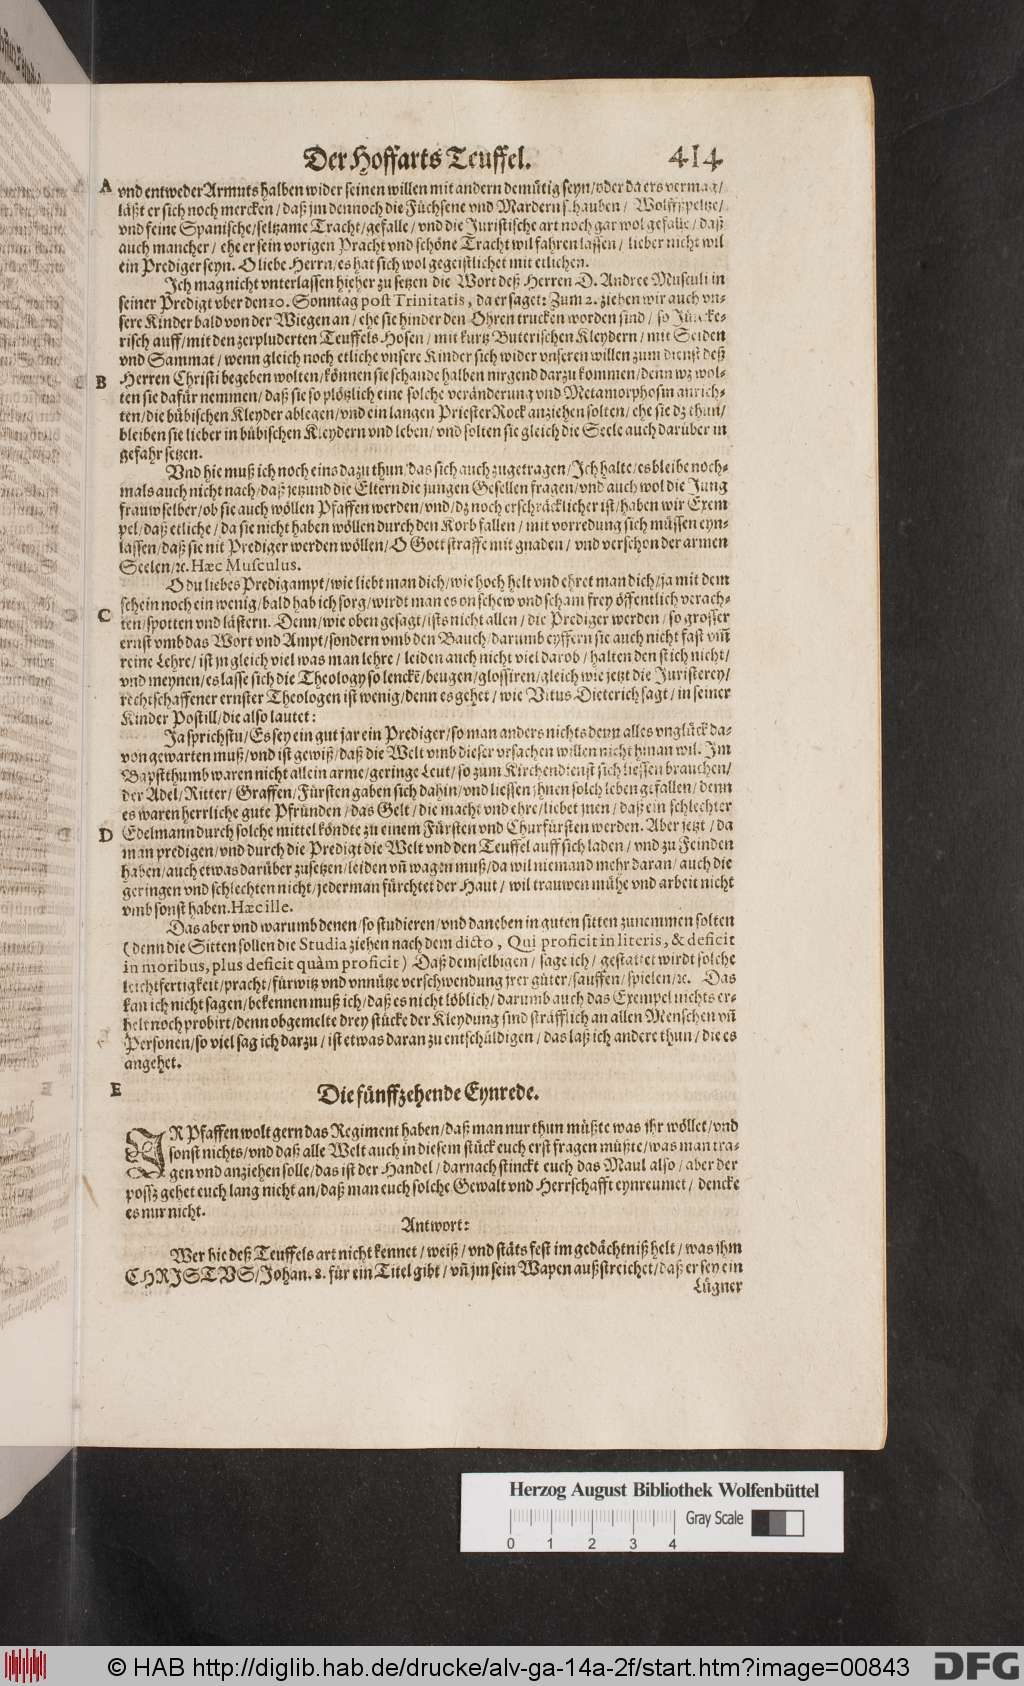 Der Hoffarts Teuffel. 414
A vnd entweder Armuts halben wider seinen willen mit andern demütig seyn/oder da ers vermag/
läßt er sich noch mercken/daß jm dennoch die Füchsene vnd Mardern schauben/ Wolffspeltze/
vnd feine Spanische/seltzame Tracht/gefalle/vnd die Juristische art noch gar wol gefalle/daß
auch mancher/ ehe er sein vorigen Pracht vnd schöne Tracht wil fahren lassen/ lieber nicht wil
ein Prediger seyn. O liebe Herrn/es hat sich wol gegeistlichet mit etlichen.
Ich mag nicht vnterlassen hieher zu setzen die Wort deß Herren D. Andree Musculi in
seiner Predigt vber den 20. Sonntag post Trinitatis, da er saget: Zum 2. ziehen wir auch vn-
sere Kinder bald von der Wiegen an/ ehe sie hinder den Ohren trucken worden sind/ so Juncke-
risch auff/mit den zerpluderten Teuffels Hosen/ mit kurtz Buterischen Kleydern/ mit Seiden
vnd Sammat/wenn gleich noch etliche vnsere Kinder sich wider vnseren willen zum dienst deß
B Herren Christi begeben wolten/können sie schande halben nirgend darzu kommen/denn wz wol-
ten sie dafür nemmen/daß sie so plötzlich eine solche veränderung vnd Metamorphosin anrich-
ten/die bübischen Kleyder ablegen/vnd ein langen Priester Rock anziehen solten/ ehe sie dz thun/
bleiben sie lieber in bübischen Kleydern vnd leben/ vnd solten sie gleich die Seele auch darüber in
gefahr setzen.
Vnd hie muß ich noch eins dazu thun/das sich auch zugetragen/Ich halte/es bleibe noch-
mals auch nicht nach/daß jetzund die Eltern die jungen Gesellen fragen/vnd auch wol die Jung
frauw selber/ob sie auch wöllen Pfaffen werden/vnd/dz noch erschräcklicher ist/haben wir Exem
pel/daß etliche/da sie nicht haben wöllen durch den Korb fallen/ mit vorredung sich müssen eyn-
lassen/daß sie nit Prediger werden wöllen/O Gott straffe mit gnaden/ vnd verschon der armen
Seelen/ꝛc. Hæc Musculus.
O du liebes Predigampt/wie liebt man dich/wie hoch helt vnd ehret man dich/ja mit dem
C schein noch ein wenig/bald hab ich sorg/wirdt man es on schew vnd scham frey öffentlich verach-
ten/spotten vnd lästern. Denn/wie oben gesagt/ists nicht allen/ die Prediger werden/ so grosser
ernst vmb das Wort vnd Ampt/sondern vmb den Bauch/darumb eyffern sie auch nicht fast vm̃
reine Lehre/ ist jn gleich viel was man lehre/ leiden auch nicht viel darob/halten den stich nicht/
vnd meynen/es lasse sich die Theology so lenckẽ/beugen/glossiren/gleich wie jetzt die Juristerey/
rechtschaffener ernster Theologen ist wenig/denn es gehet/ wie Vitus Dieterich sagt/ in seiner
Kinder Postill/die also lautet:
Ja sprichstu/Es sey ein gut jar ein Prediger/so man anders nichts denn alles vnglück da-
von gewarten muß/vnd ist gewiß/daß die Welt vmb dieser vrsachen willen nicht hinan wil. Im
Bapstthumb waren nicht allein arme/geringe Leut/so zum Kirchendienst sich liessen brauchen/
der Adel/Ritter/ Graffen/Fürsten gaben sich dahin/vnd liessen jhnen solch leben gefallen/denn
es waren herrliche gute Pfründen/das Gelt/die macht vnd ehre/liebet jnen/ daß ein schlechter
D Edelmann durch solche mittel köndte zu einem Fürsten vnd Churfürsten werden. Aber jetzt/da
man predigen/vnd durch die Predigt die Welt vnd den Teuffel auff sich laden/ vnd zu Feinden
haben/auch etwas darüber zusetzen/leiden vñ wagen muß/da wil niemand mehr daran/ auch die
geringen vnd schlechten nicht/jederman fürchtet der Haut/ wil trauwen mühe vnd arbeit nicht
vmb sonst haben. Hæc ille.
Das aber vnd warumb denen/so studieren/vnd daneben in guten sitten zunemmen solten
(denn die Sitten sollen die Studia ziehen nach dem dicto, Qui proficit in literis, & deficit
in moribus, plus deficit quàm proficit) Daß demselbigen/ sage ich/ gestattet wirdt solche
leichtfertigkeit/pracht/fürwitz vnd vnnütze verschwendung jrer güter/sauffen/spielen/ꝛc. Das
kan ich nicht sagen/bekennen muß ich/daß es nicht löblich/darumb auch das Exempel nichts er-
helt noch probirt/denn obgemelte drey stücke der Kleydung sind sträfflich an allen Menschen vñ
Personen/so viel sag ich darzu/ ist etwas daran zu entschüldigen/das laß ich andere thun/die es
angehet.
E Die fünffzehende Eynrede.
IR Pfaffen wolt gern das Regiment haben/daß man nur thun müßte was jhr wöllet/vnd
sonst nichts/vnd daß alle Welt auch in diesem stück euch erst fragen müßte/was man tra-
gen vnd anziehen solle/das ist der Handel/darnach stinckt euch das Maul also/ aber der
possz gehet euch lang nicht an/daß man euch solche Gewalt vnd Herrschafft eynreumet/ dencke
es nur nicht.
Antwort:
Wer hie deß Teuffels art nicht kennet/ weiß/ vnd stäts fest im gedächtniß helt/was jhm
CHRISTVS/Johan. 8. für ein Titel gibt/ vñ jm sein Wapen außstreichet/daß er sey ein
Lügner
Herzog August Bibliothek Wolfenbüttel
Gray Scale
0 1 2 3 4
© HAB http://diglib.hab.de/drucke/alv-ga-14a-2f/start.htm?image=00843 DFG